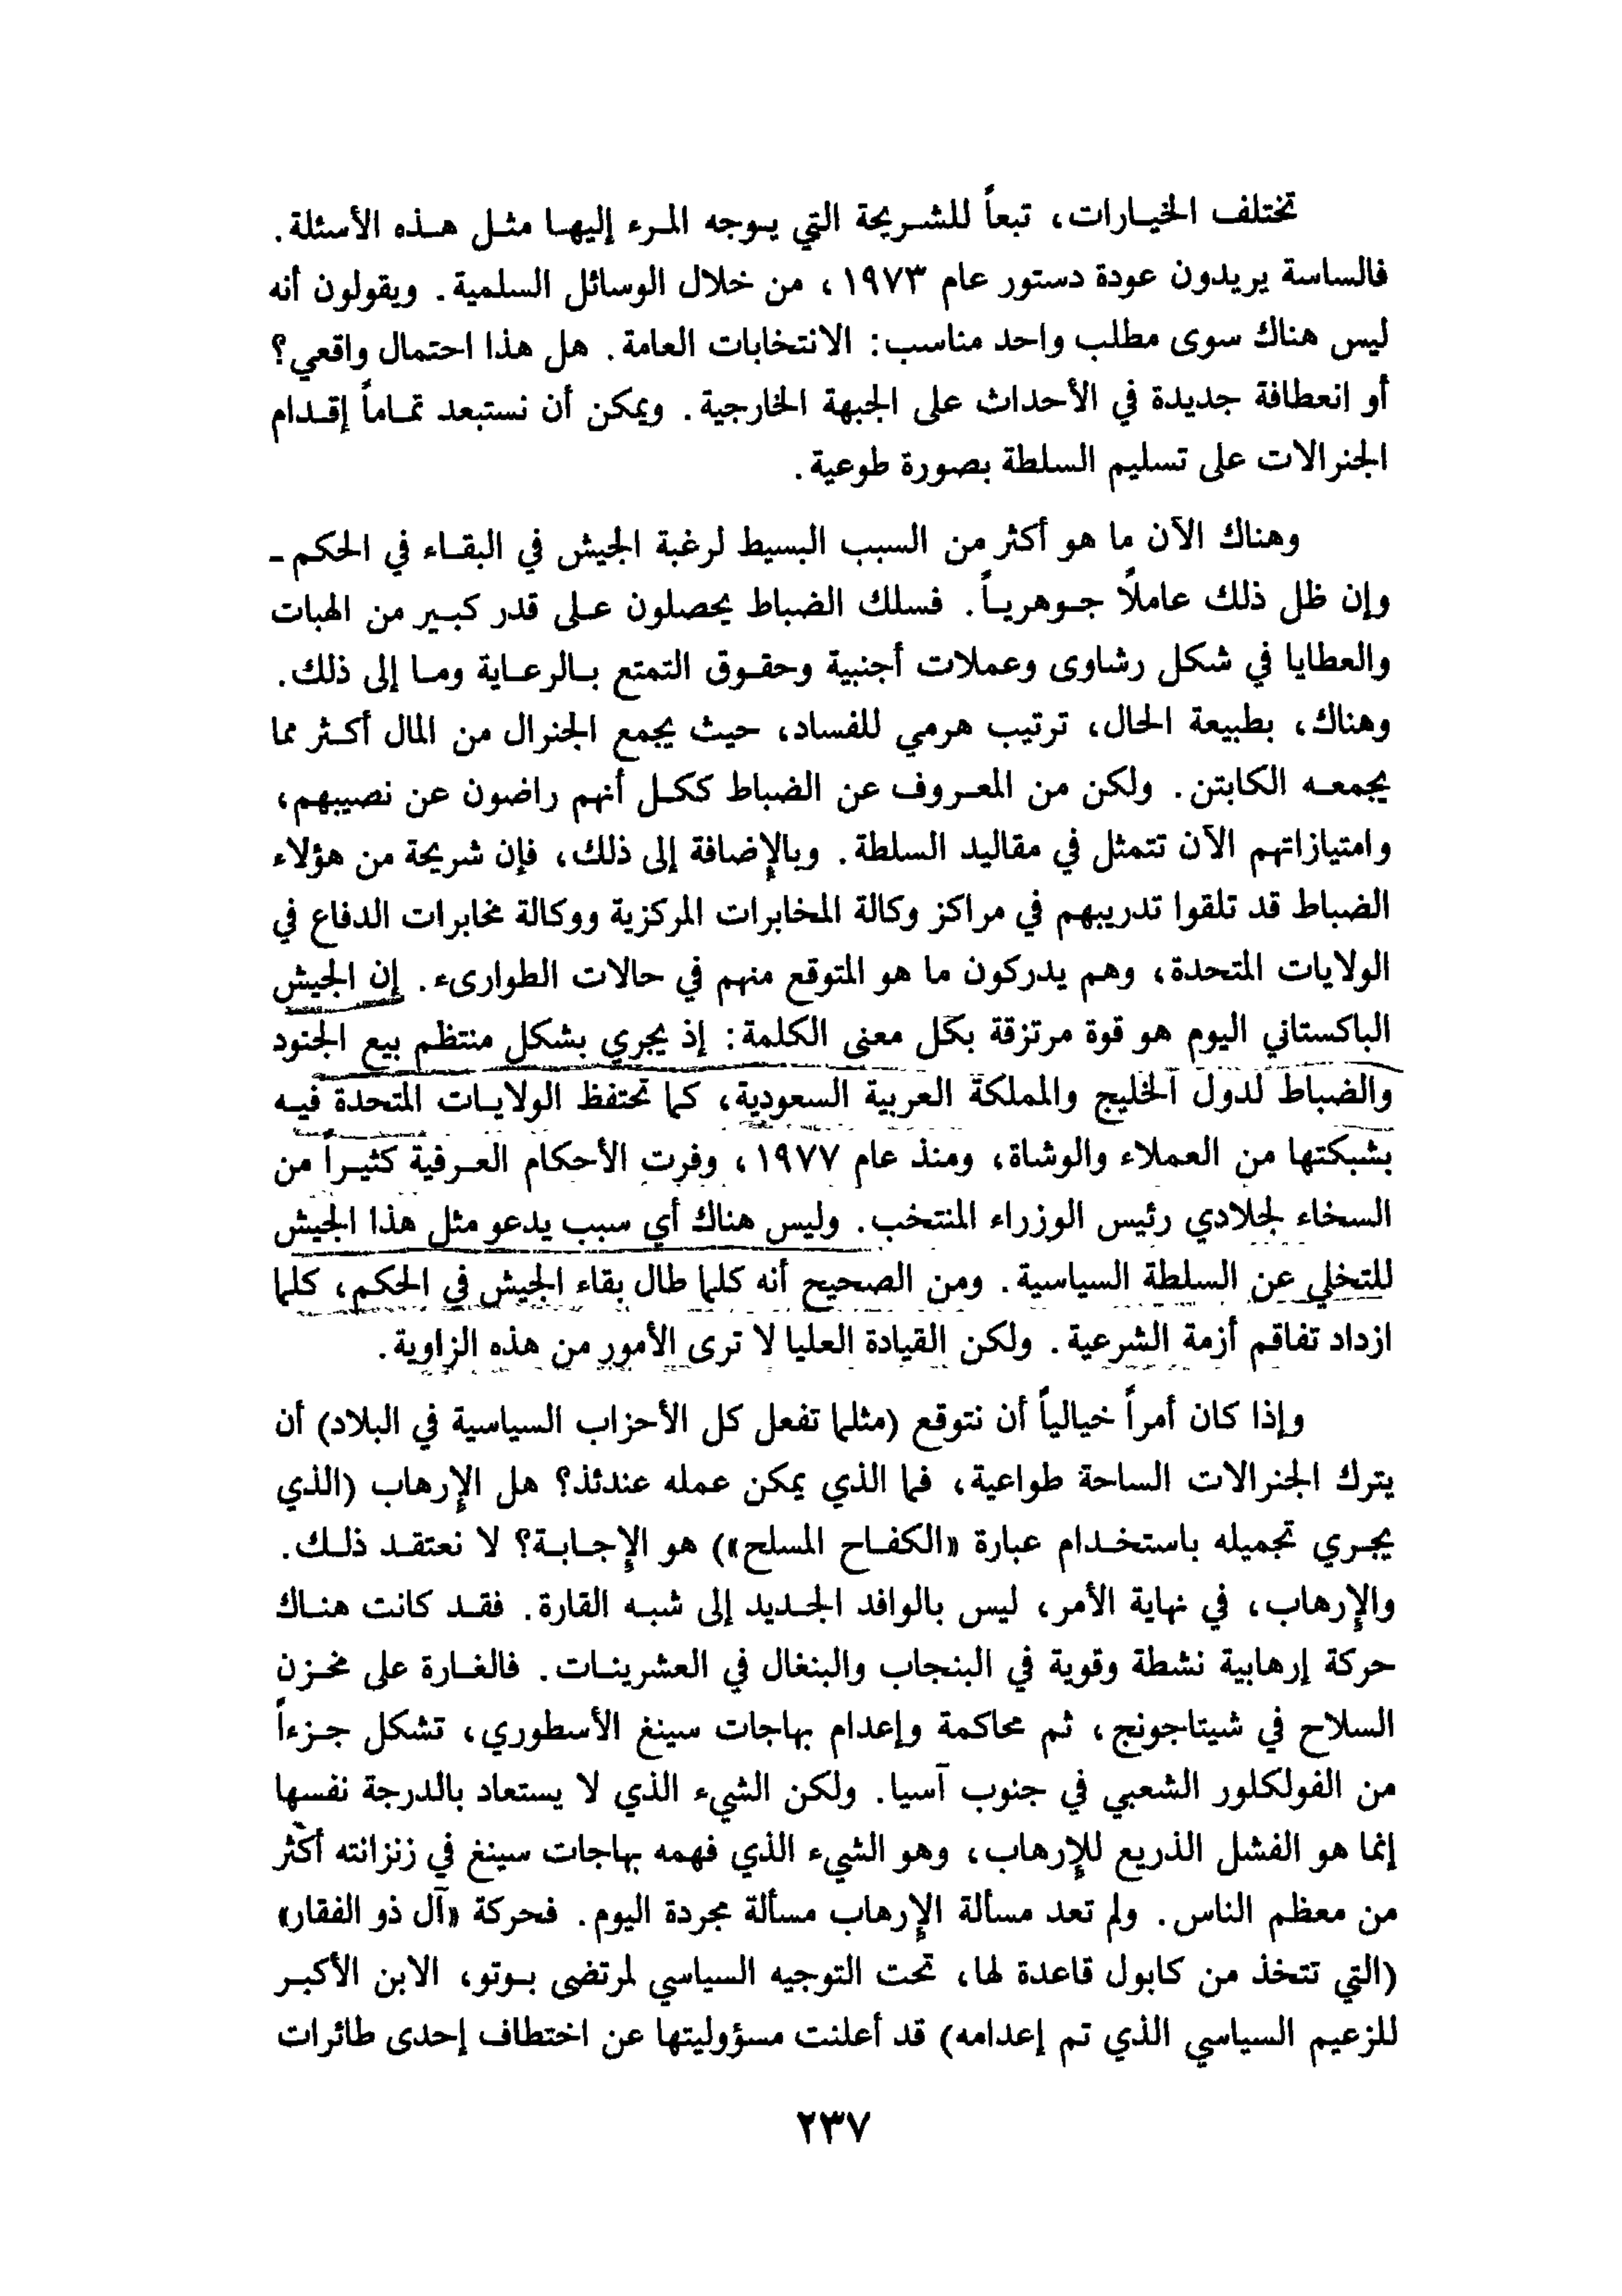 تختلف الخيارات، تبعاً للشريحة التي يوجه المرء إليها مثل هذه الأسئلة.
فالساسة يريدون عودة دستور عام ١٩٧٣، من خلال الوسائل السلمية. ويقولون أنه
ليس هناك سوى مطلب واحد مناسب: الانتخابات العامة. هل هذا احتمال واقعي؟
أو انعطافة جديدة في الأحداث على الجبهة الخارجية. ويمكن أن نستبعد تماماً إقدام
الجنرالات على تسليم السلطة بصورة طوعية.
وهناك الآن ما هو أكثر من السبب البسيط لرغبة الجيش في البقاء في الحكم -
وإن ظل ذلك عاملاً جوهرياً. فسلك الضباط يحصلون على قدر كبير من الهبات
والعطايا في شكل رشاوى وعملات أجنبية وحقوق التمتع بالرعاية وما إلى ذلك.
وهناك، بطبيعة الحال، ترتيب هرمي للفساد، حيث يجمع الجنرال من المال أكثر مما
يجمعه الكابتن. ولكن من المعروف عن الضباط ككل أنهم راضون عن نصيبهم،
وامتيازاتهم الآن تتمثل في مقاليد السلطة. وبالإضافة إلى ذلك، فإن شريحة من هؤلاء
الضباط قد تلقوا تدريبهم في مراكز وكالة المخابرات المركزية ووكالة مخابرات الدفاع في
الولايات المتحدة، وهم يدركون ما هو المتوقع منهم في حالات الطوارىء. إن الجيش
الباكستاني اليوم هو قوة مرتزقة بكل معنى الكلمة: إذ يجري بشكل منتظم بيع الجنود
والضباط لدول الخليج والمملكة العربية السعودية، كما تحتفظ الولايات المتحدة فيه
بشبكتها من العملاء والوشاة، ومنذ عام ١٩٧٧، وفرت الأحكام العرفية كثيراً من
السخاء لجلادي رئيس الوزراء المنتخب. وليس هناك أي سبب يدعو مثل هذا الجيش
للتخلي عن السلطة السياسية. ومن الصحيح أنه كلما طال بقاء الجيش في الحكم، كلما
ازداد تفاقم أزمة الشرعية. ولكن القيادة العليا لا ترى الأمور من هذه الزاوية.
وإذا كان أمراً خيالياً أن نتوقع (مثلما تفعل كل الأحزاب السياسية في البلاد) أن
يترك الجنرالات الساحة طواعية، فما الذي يمكن عمله عندئذ؟ هل الإرهاب (الذي
يجري تجميله باستخدام عبارة «الكفاح المسلح») هو الإجابة؟ لا نعتقد ذلك.
والإرهاب، في نهاية الأمر، ليس بالوافد الجديد إلى شبه القارة. فقد كانت هناك
حركة إرهابية نشطة وقوية في البنجاب والبنغال في العشرينات. فالغارة على مخزن
السلاح في شيتاجونج، ثم محاكمة وإعدام بهاجات سينغ الأسطوري، تشكل جزءاً
من الفولكلور الشعبي في جنوب آسيا. ولكن الشيء الذي لا يستعاد بالدرجة نفسها
إنما هو الفشل الذريع للإرهاب، وهو الشيء الذي فهمه بهاجات سينغ في زنزانته أكثر
من معظم الناس. ولم تعد مسألة الإرهاب مسألة مجردة اليوم. فحركة «آل ذو الفقار»
(التي تتخذ من كابول قاعدة لها، تحت التوجيه السياسي لمرتضى بوتو، الابن الأكبر
للزعيم السياسي الذي تم إعدامه) قد أعلنت مسؤوليتها عن اختطاف إحدى طائرات
٢٣٧